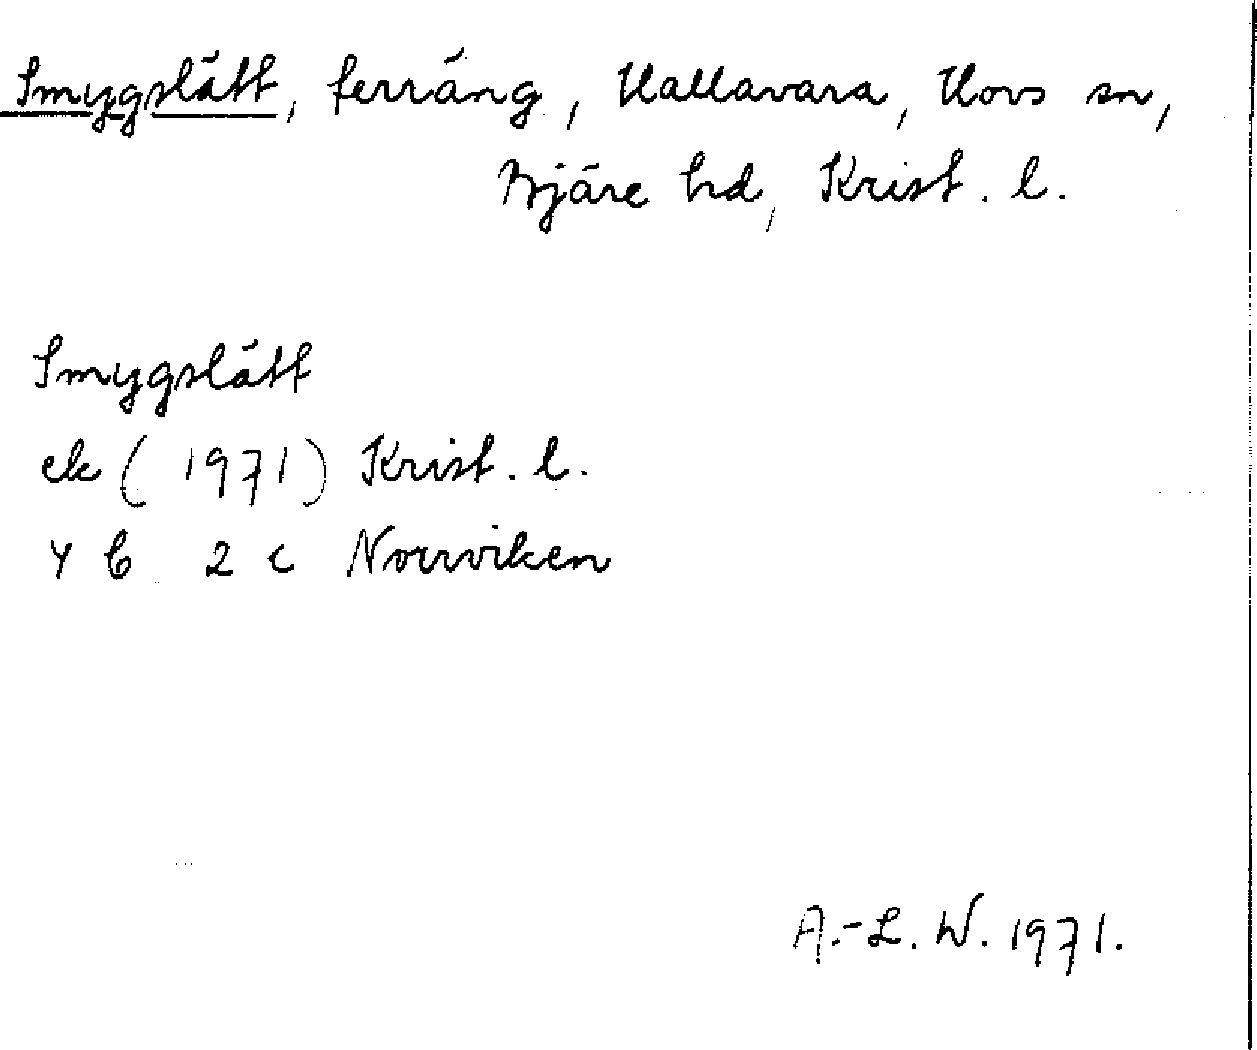 Smygslätt, terräng, Hallavara, Hovs sn,
Bjäre hd, Krist. l.
Smygslätt
ek (1971) Krist. l.
4 C 2 c Norrviken
A.-L. W. 1971.